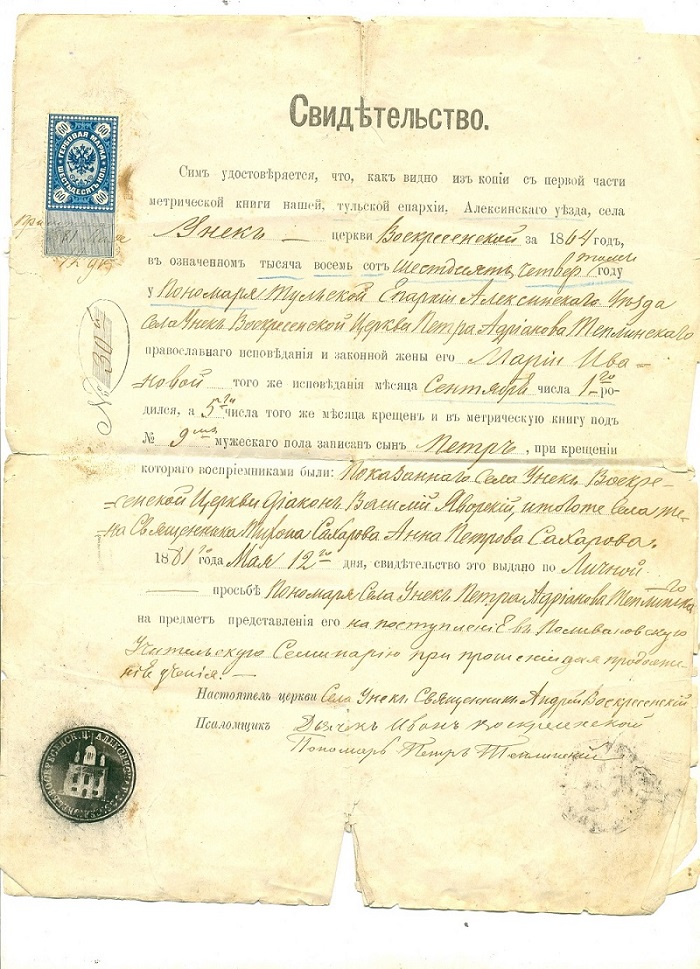 Свидѣтельство.
60 60
ГЕРБОВАЯ МАРКА
ШЕСТЬДЕСЯТЪ КОП.
60 60
Симъ удостовѣряется, что, какъ видно изъ копіи съ первой части
метрической книги нашей, тульской епархіи, Алексинскаго уѣзда, села
Унекъ — церкви Воскресенской за 1864 годъ,
въ означенномъ тысяча восемь сотъ шестдесятъ четвертомъ году
у Пономаря Тульской Епархіи Алексинскаго Уѣзда
Села Унекъ Воскресенской Церкви Петра Адріанова Теплинскаго
православнаго исповѣданія и законной жены его Маріи Ива-
новой того же исповѣданія мѣсяца Сентября числа 1го ро-
дился, а 5го числа того же мѣсяца крещенъ и въ метрическую книгу подъ
№ 9мъ мужескаго пола записанъ сынъ Петръ, при крещеніи
котораго воспріемниками были: Показаннаго Села Унекъ Воскре-
сенской Церкви діаконъ Василій Яворскій, и тогоже села
Священника Тихона Сахарова Анна Петрова Сахарова.
1881го года Мая 12го дня, свидѣтельство это выдано по Личной
— просьбѣ Пономаря Села Унекъ Петра Адріанова Теплинскаго
на предметъ представленія его на поступленіе въ Поливановскую
Учительскую Семинарію при прошеніи для продолже-
нія ученія.
Настоятель церкви Села Унекъ Священникъ Андрей Воскресенскій
Псаломщикъ Дьячекъ Иванъ Воскресенской
Пономарь Петръ Теплинскій
№ 30й